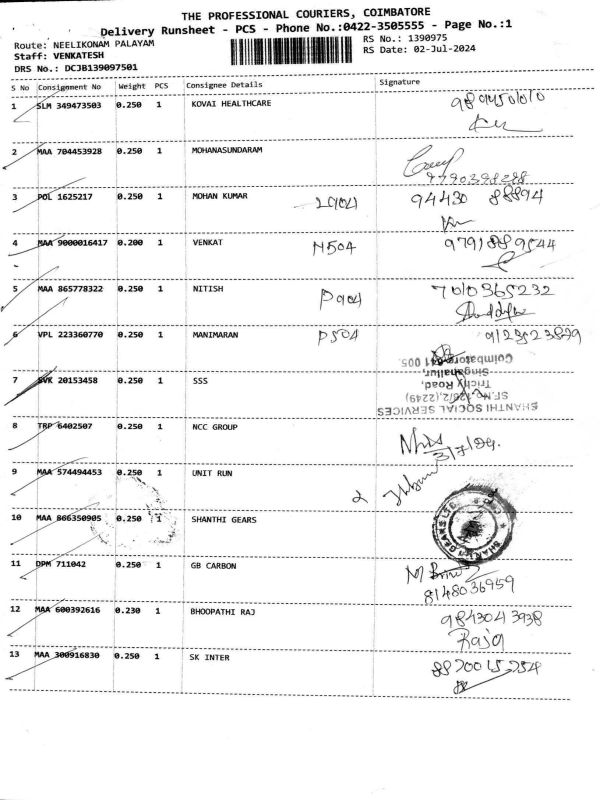 THE PROFESSIONAL COURIERS, COIMBATORE
Delivery Runsheet - PCS - Phone No.:0422-3505555 - Page No.:1
Route: NEELIKONAM PALAYAM RS No.: 1390975
Staff: VENKATESH RS Date: 02-Jul-2024
DRS No.: DCJB139097501
S No Consignment No Weight PCS Consignee Details Signature
1 SLM 349473503 0.250 1 KOVAI HEALTHCARE
2 MAA 704453928 0.250 1 MOHANASUNDARAM
3 POL 1625217 0.250 1 MOHAN KUMAR L904 94430 88894
4 MAA 9000016417 0.200 1 VENKAT N504
5 MAA 865778322 0.250 1 NITISH P904 7010365232
6 VPL 223360770 0.250 1 MANIMARAN P504
7 SVK 20153458 0.250 1 SSS
SHANTHI SOCIAL SERVICES
Trichy Road,
Singanallur,
Coimbatore 641 005.
8 TRP 6402507 0.250 1 NCC GROUP 3/7/24.
9 MAA 574494453 0.250 1 UNIT RUN 2
10 MAA 866350905 0.250 1 SHANTHI GEARS
SHANTHI GEARS LTD
11 DPM 711042 0.250 1 GB CARBON
8148036959
12 MAA 600392616 0.230 1 BHOOPATHI RAJ 9843043938
Raja
13 MAA 300916830 0.250 1 SK INTER